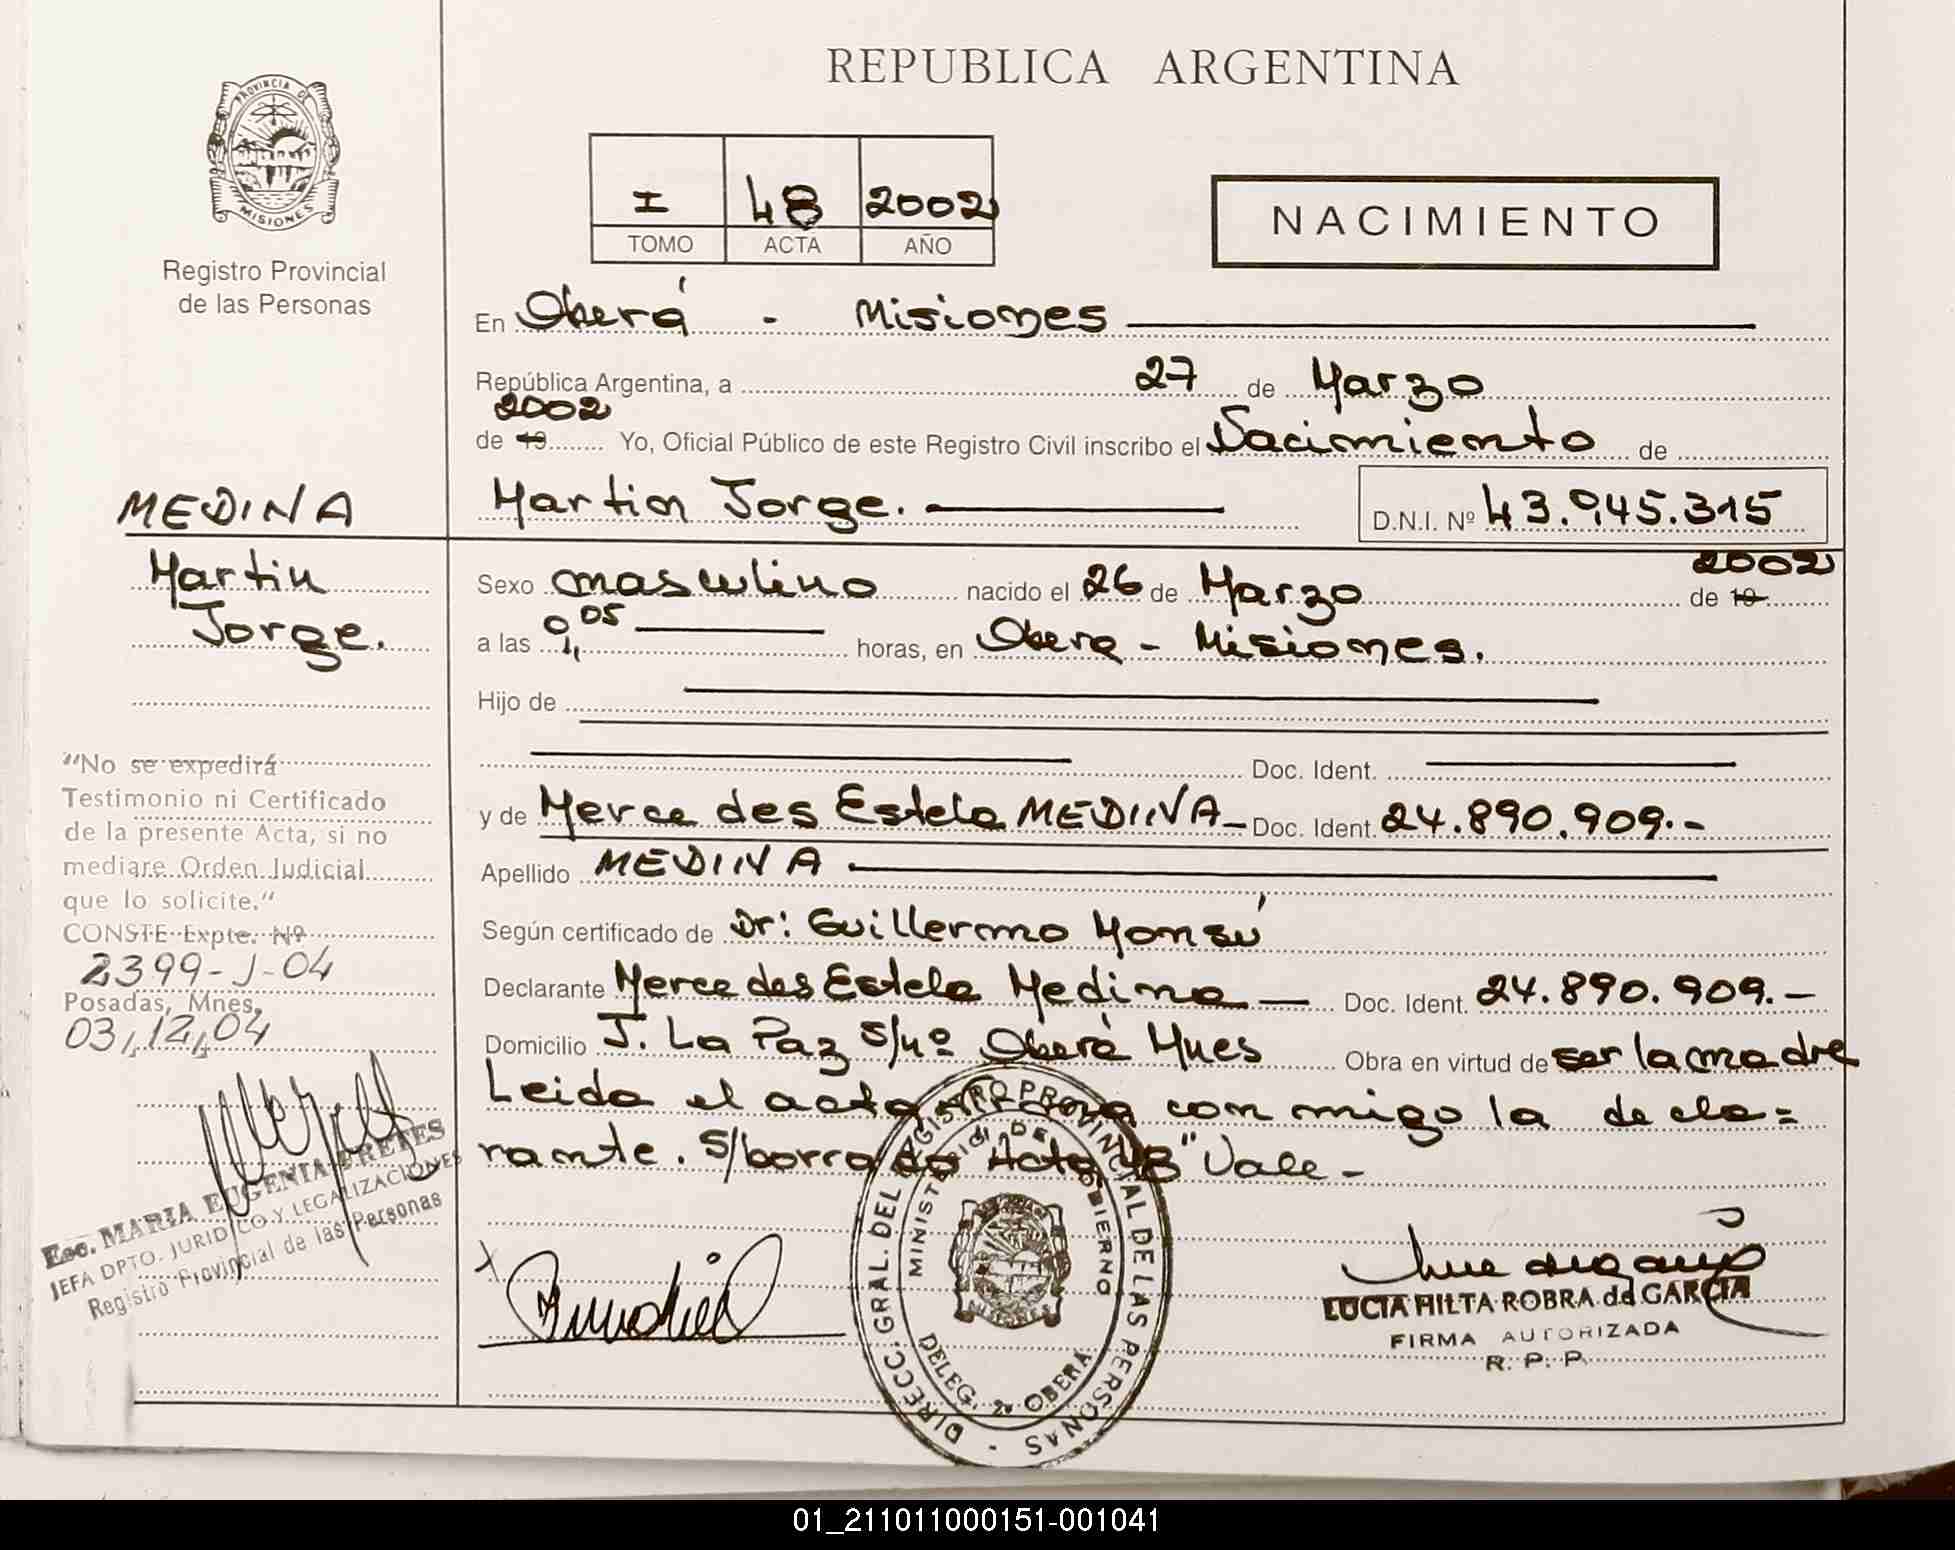 REPUBLICA ARGENTINA
PROVINCIA DE
MISIONES
Registro Provincial
de las Personas
I 48 2002
TOMO ACTA AÑO
NACIMIENTO
En Oberá - Misiones
República Argentina, a 27 de Marzo
2002
de 19 Yo, Oficial Público de este Registro Civil inscribo el Nacimiento de
Martin Jorge. D.N.I. Nº 43.945.315
MEDINA
Martin
Jorge.
2002
Sexo masculino nacido el 26 de Marzo de 19
a las 9,05 horas, en Obera - Misiones.
Hijo de
Doc. Ident.
y de Mercedes Estela MEDINA - Doc. Ident. 24.890.909.-
Apellido MEDINA
Según certificado de Dr: Guillermo Monsú
Declarante Mercedes Estela Medina — Doc. Ident. 24.890.909.-
Domicilio J. La Paz s/nº Oberá Mnes Obra en virtud de ser la madre
Leida el acta firma con migo la decla=
rante. S/borrado Acta 48" Vale -
"No se expedirá
Testimonio ni Certificado
de la presente Acta, si no
mediare Orden Judicial
que lo solicite."
CONSTE Expte. Nº
2399-J-04
Posadas, Mnes,
03,12,04
Esc. MARIA EUGENIA BRETES
JEFA DPTO. JURIDICO Y LEGALIZACIONES
Registro Provincial de las Personas
DIRECC. GRAL. DEL REGISTRO PROVINCIAL DE LAS PERSONAS
MINISTERIO DE GOBIERNO
MISIONES
DELEG. 2º OBERA
LUCIA HILTA ROBRA de GARCIA
FIRMA AUTORIZADA
R. P. P.
01_211011000151-001041